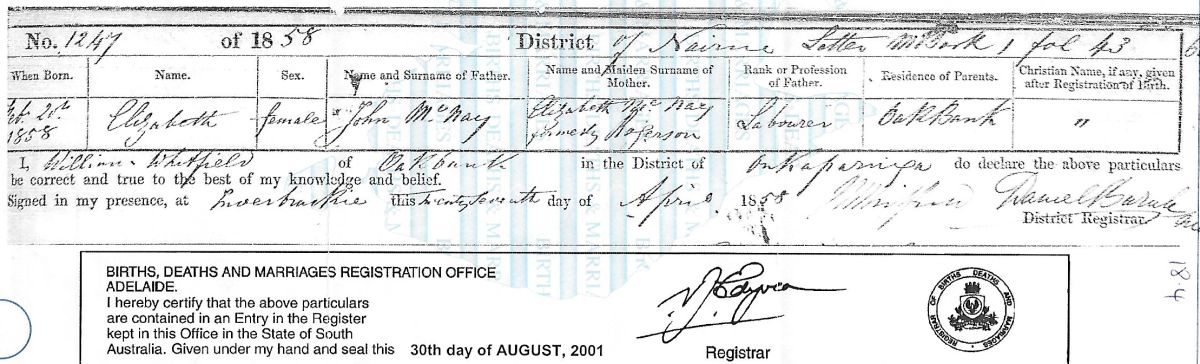 No. 1247 of 1858 District of Nairne Letter M Book 1 fol 43
When Born. Name. Sex. Name and Surname of Father. Name and Maiden Surname of Mother. Rank or Profession of Father. Residence of Parents. Christian Name, if any, given after Registration of Birth.
Feb. 20th 1858 Elizabeth female John McNay Elizabeth McNay formerly Rogerson Labourer Oakbank "
I, William Whitfield of Oakbank in the District of Onkaparinga do declare the above particulars
be correct and true to the best of my knowledge and belief.
Signed in my presence, at Inverbrackie this twenty seventh day of April 1858 Daniel
District Registrar.
BIRTHS, DEATHS AND MARRIAGES REGISTRATION OFFICE
ADELAIDE.
I hereby certify that the above particulars
are contained in an Entry in the Register
kept in this Office in the State of South
Australia. Given under my hand and seal this 30th day of AUGUST, 2001
Registrar
REGISTRAR OF BIRTHS DEATHS AND MARRIAGES